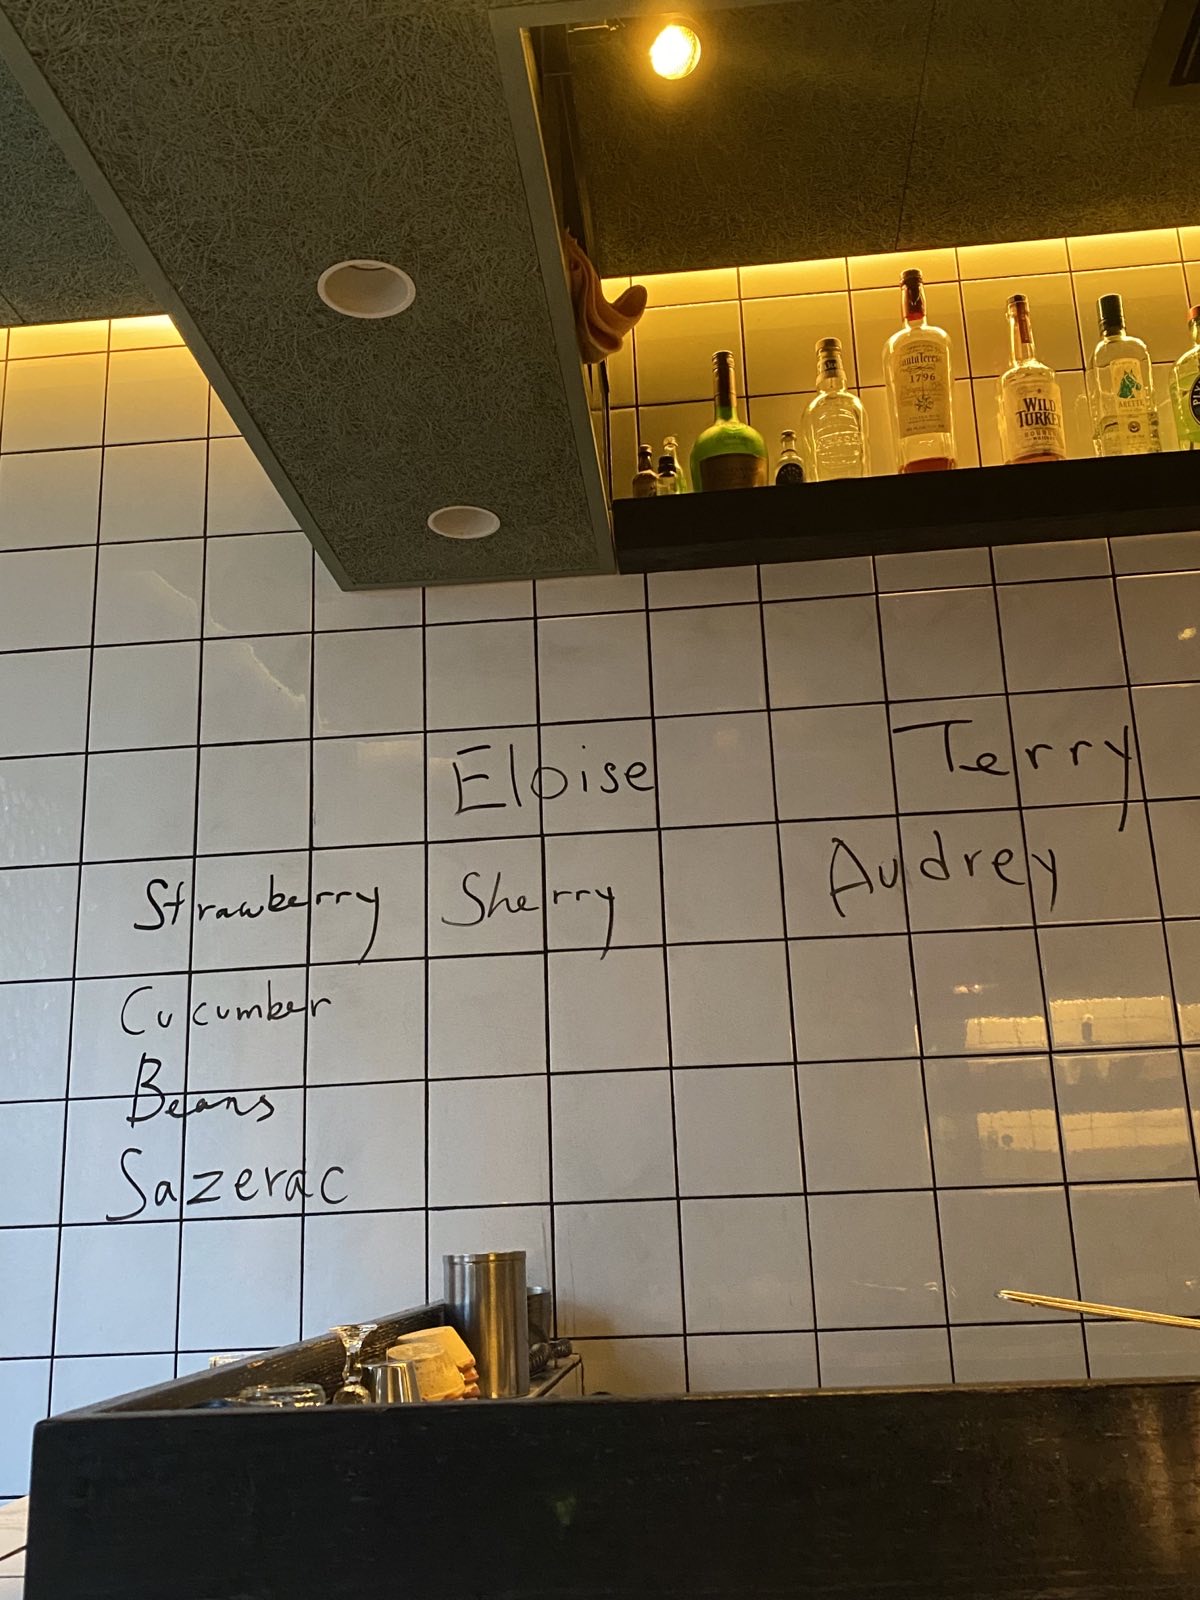 Santa Teresa
1796
WILD
TURKEY
BOURBON
ARETTE
Eloise
Terry
Strawberry Sherry
Audrey
Cucumber
Beans
Sazerac